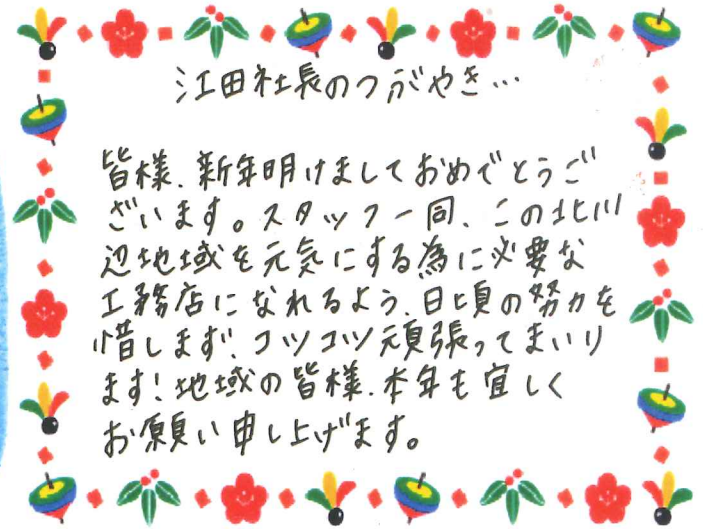 江田社長のつぶやき…
皆様、新年明けましておめでとうご
ざいます。スタッフ一同、この北川
辺地域を元気にする為に必要な
工務店になれるよう、日頃の努力を
惜しまず、コツコツ頑張ってまいり
ます!地域の皆様、本年も宜しく
お願い申し上げます。